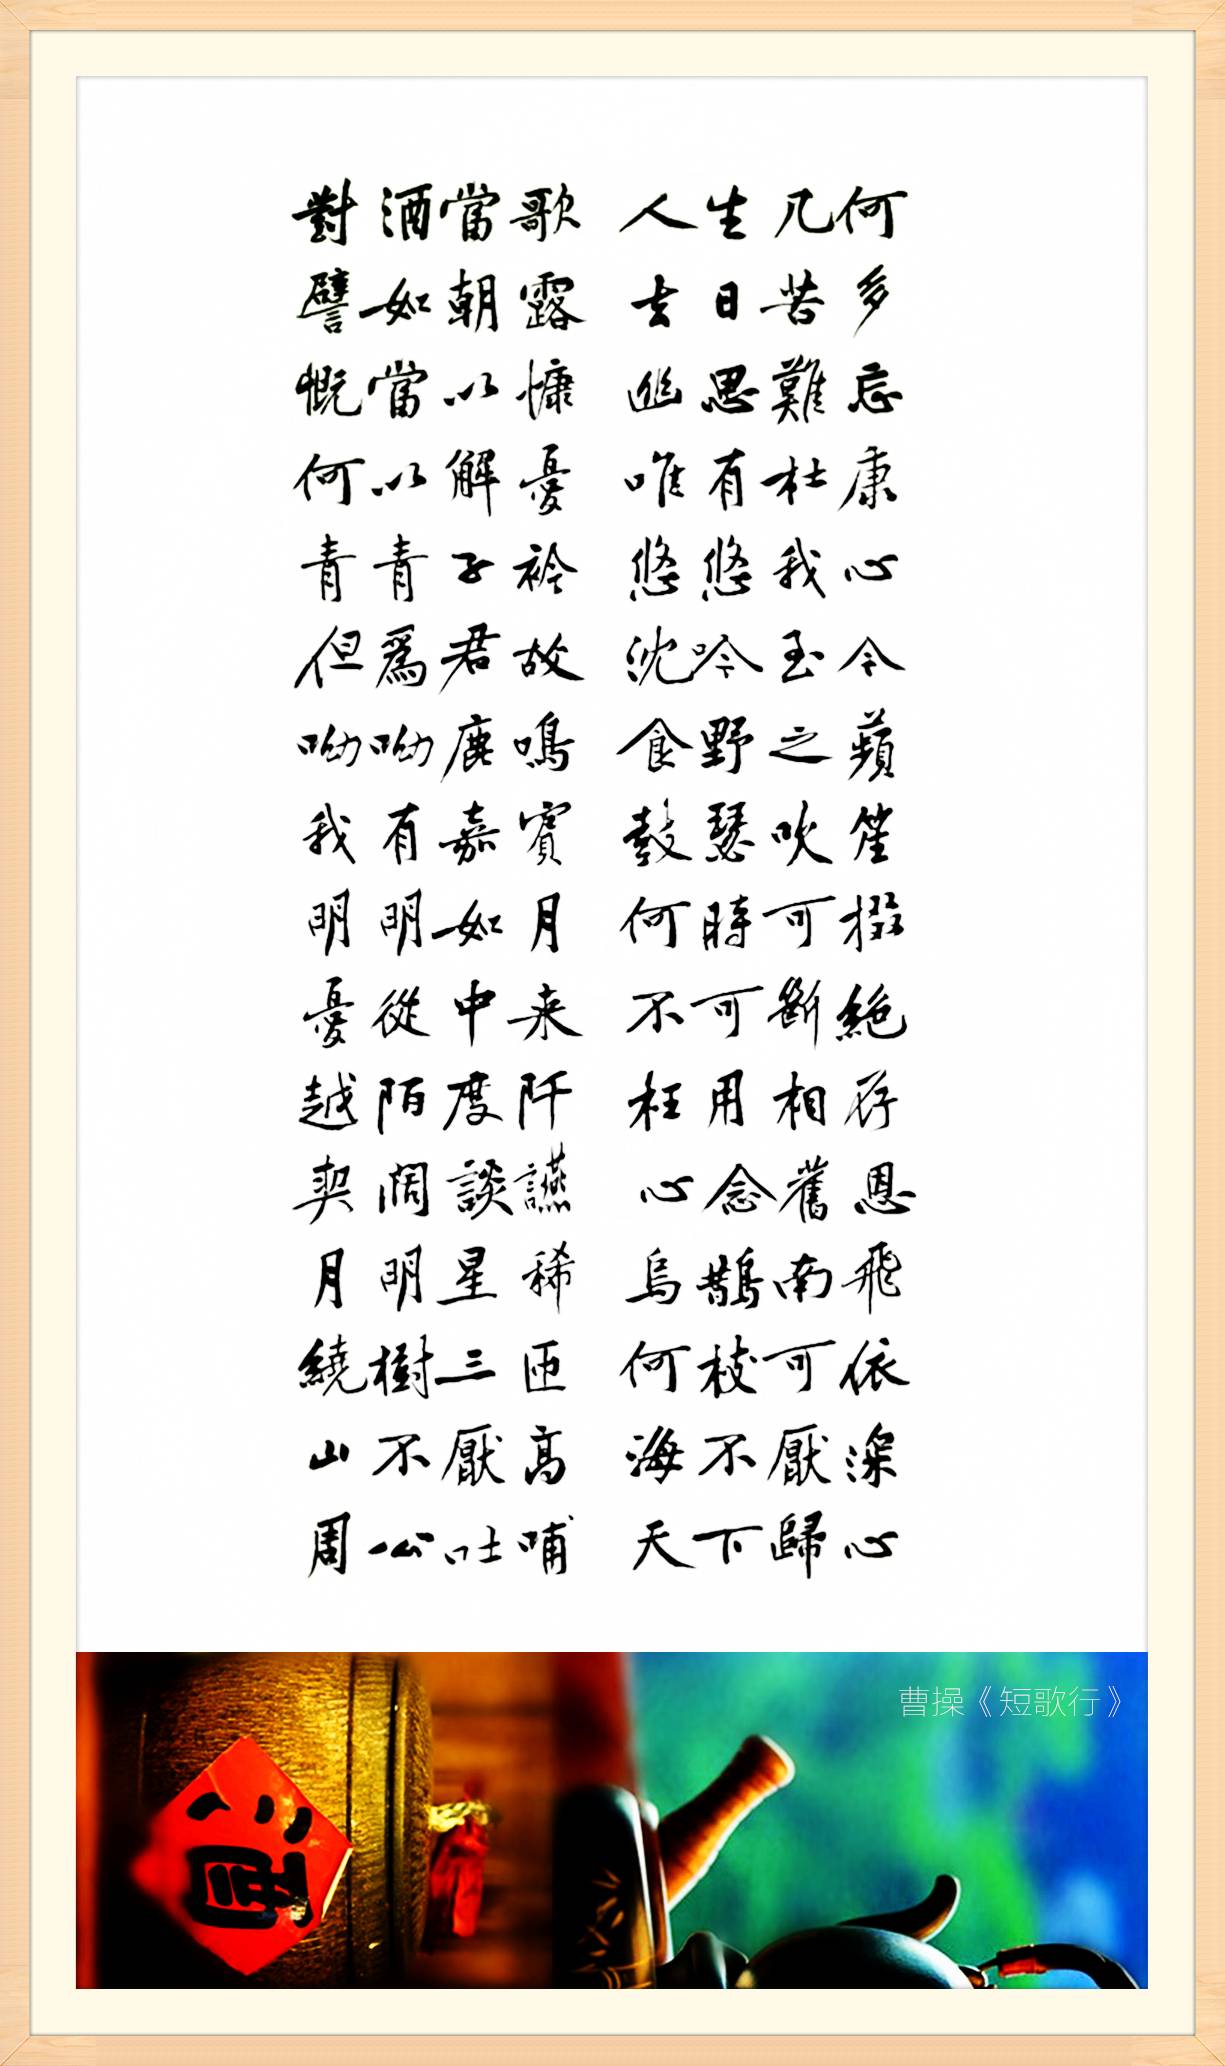 對酒當歌 人生几何
譬如朝露 去日苦多
慨當以慷 幽思難忘
何以解憂 唯有杜康
青青子衿 悠悠我心
但爲君故 沈吟至今
呦呦鹿鳴 食野之蘋
我有嘉賓 鼓瑟吹笙
明明如月 何時可掇
憂從中来 不可斷絕
越陌度阡 枉用相存
契闊談讌 心念舊恩
月明星稀 烏鵲南飛
繞樹三匝 何枝可依
山不厭高 海不厭深
周公吐哺 天下歸心
曹操《短歌行》
酒